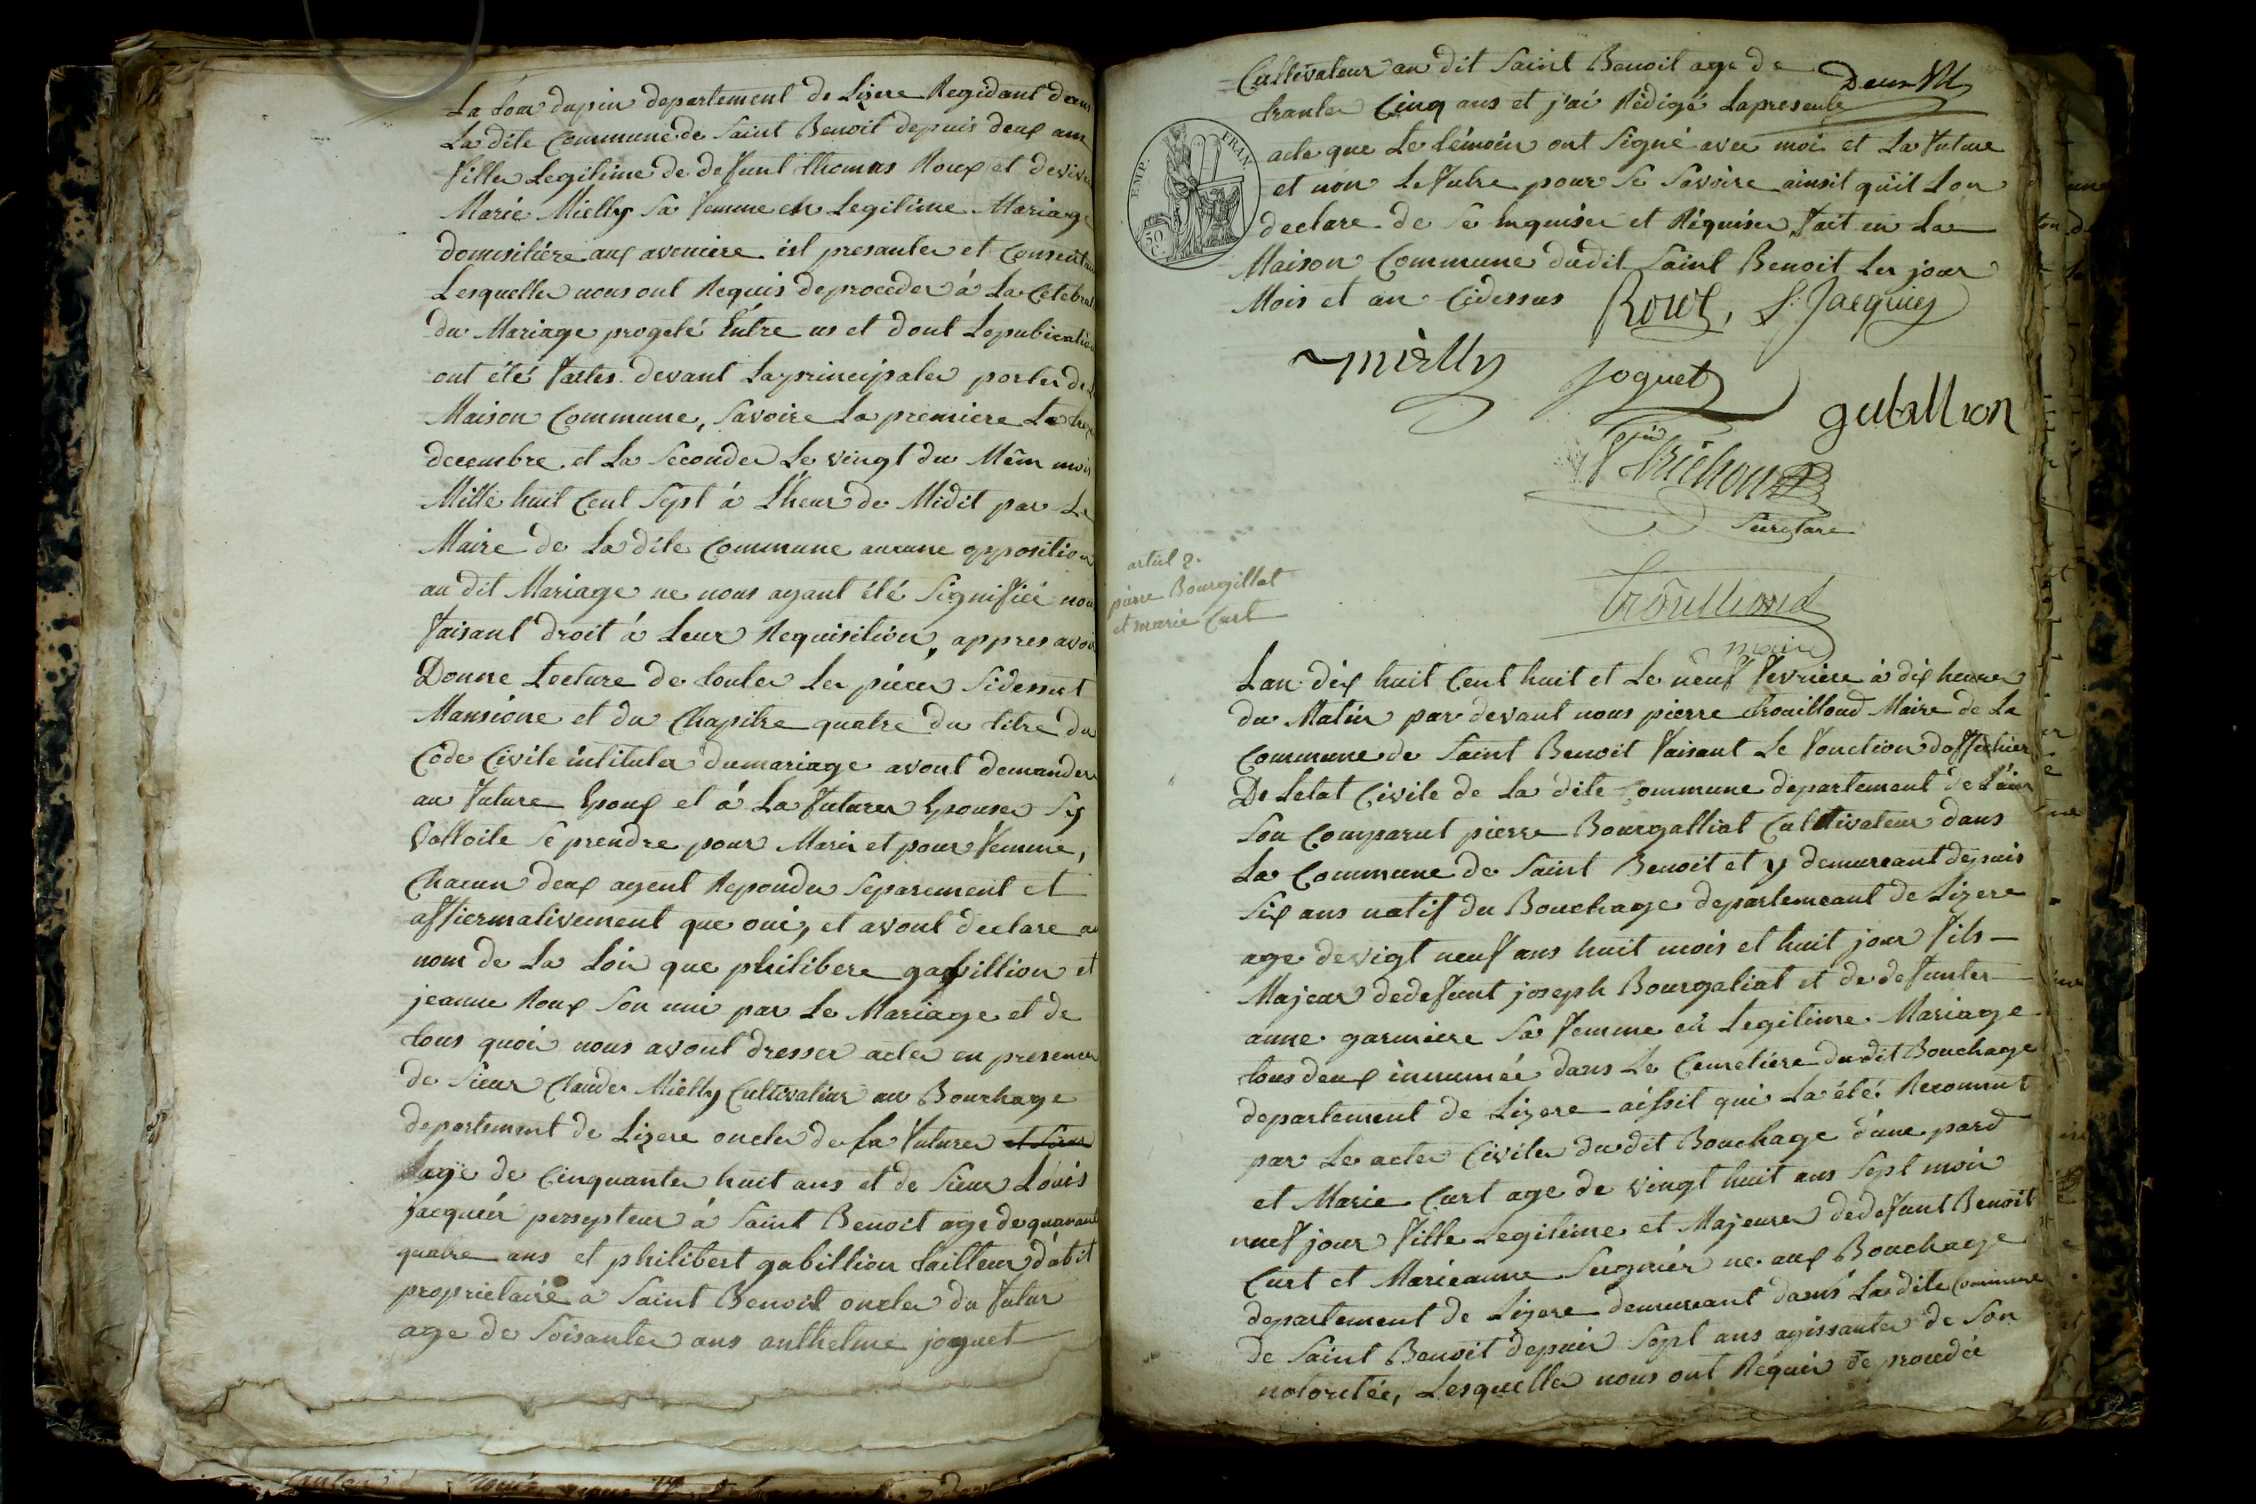 La tour dupin departement de Lizere Residant dans
La dite Commune de Saint Benoit depuis deux ans
fille Legitime de defunt thomas Roux et de vivante
Marie Mielly sa femme en Legitime Mariage
domisiliére aux aveniere ist presante et Consentante
Lesquelles nous ont Requis deproceder á La Celebration
du Mariage progeté Entre us et dont Lepublication
ont été faites devant Laprincipale porte de La
Maison Commune, Savoire La premiere Le
decembre et La Seconde Le vingt du Mêm mois
Mille huit Cent Sept á L'heur de Midit par Le
Maire de La dite Commune aucune opposition
au dit Mariage ne nous ayant été Signifiée nous
faisant droit á Leur Requisition, appres avoir
Donne Lecture de toutes Les piéces Sidessut
Mansione et du Chapitre quatre du titre du
Code Civile intitules dumariage avont demander
au future Epoux et á La future Epouse Sy
Volloite Se prendre pour Mari et pour femme,
Chacun deux ayent Repondu Separement et
affiermativement que oui, et avont declare au
nom de La Loi que philibere gabillion et
jeanne Roux Son uni par Le Mariage et de
tous quoi nous avont dresser acte en presence
de Sieur Claude Mielly Cultivateur au Bouchage
departement de Lizere oncle de La future et Sieur
age de Cinquante huit ans et de Sieur Louis
jacquier persepteur á Saint Benoit age de quarante
quatre ans et philibert gabillion tailleur d'abit
proprietaire a Saint Benoit oncle du futur
age de Soisante ans anthelme joguet
Cultivateur au dit Saint Benoit age de
trante Cinq ans et j'ai Rédigé Lapresente
acte que Le témoin ont Signé avec moi et La future
et non Le futre pour Se Savoire ainsit quit Lon
declare de Ce Enquiser et Réquiser, fait en La
Maison Commune dudit Saint Benoit Les jour
Mois et an Cidessus Roux, L. Jacquier
mielly joguet
gubillion
trichon
Secretare
EMP. FRAN
50 C
artiel 2.
pierre Bourgillat
et marie Curt
trouilloud
maire
Lan dix huit Cent huit et Le neuf fevriere á dix heures
du Matin par devant nous pierre trouilloud Maire de La
Commune de Saint Benoit faisant Le fonction doffichier
De Letat Civile de La dite Commune departement de L'ain
Son Comparut pierre Bourgalliat Cultivateur dans
La Commune de Saint Benoit et y demureant depuis
Six ans natif du Bouchage departemeant de Lizere
age de vigt neuf ans huit mois et huit jour fils
Majeur dedefunt joseph Bourgaliat et de defunte
anne garniere Sa femme en Legitime Mariage
tous deux innumée dans Le Cemetiére du dit Bouchage
departement de Lizere aissit qui La été Reconnut
par Le actes Civiles du dit Bouchage d'une pard
et Marie Curt age de vingt huit ans Sept mois
neuf jour fille Legitime et Majeure dedefunt Benoit
Curt et Marieanne ne aux Bouchage
departement de Lizere demureant dans La dite Commune
de Saint Benoit depuis Sept ans agissante de Son
notoritée, Lesquelles nous ont Requis de procedée